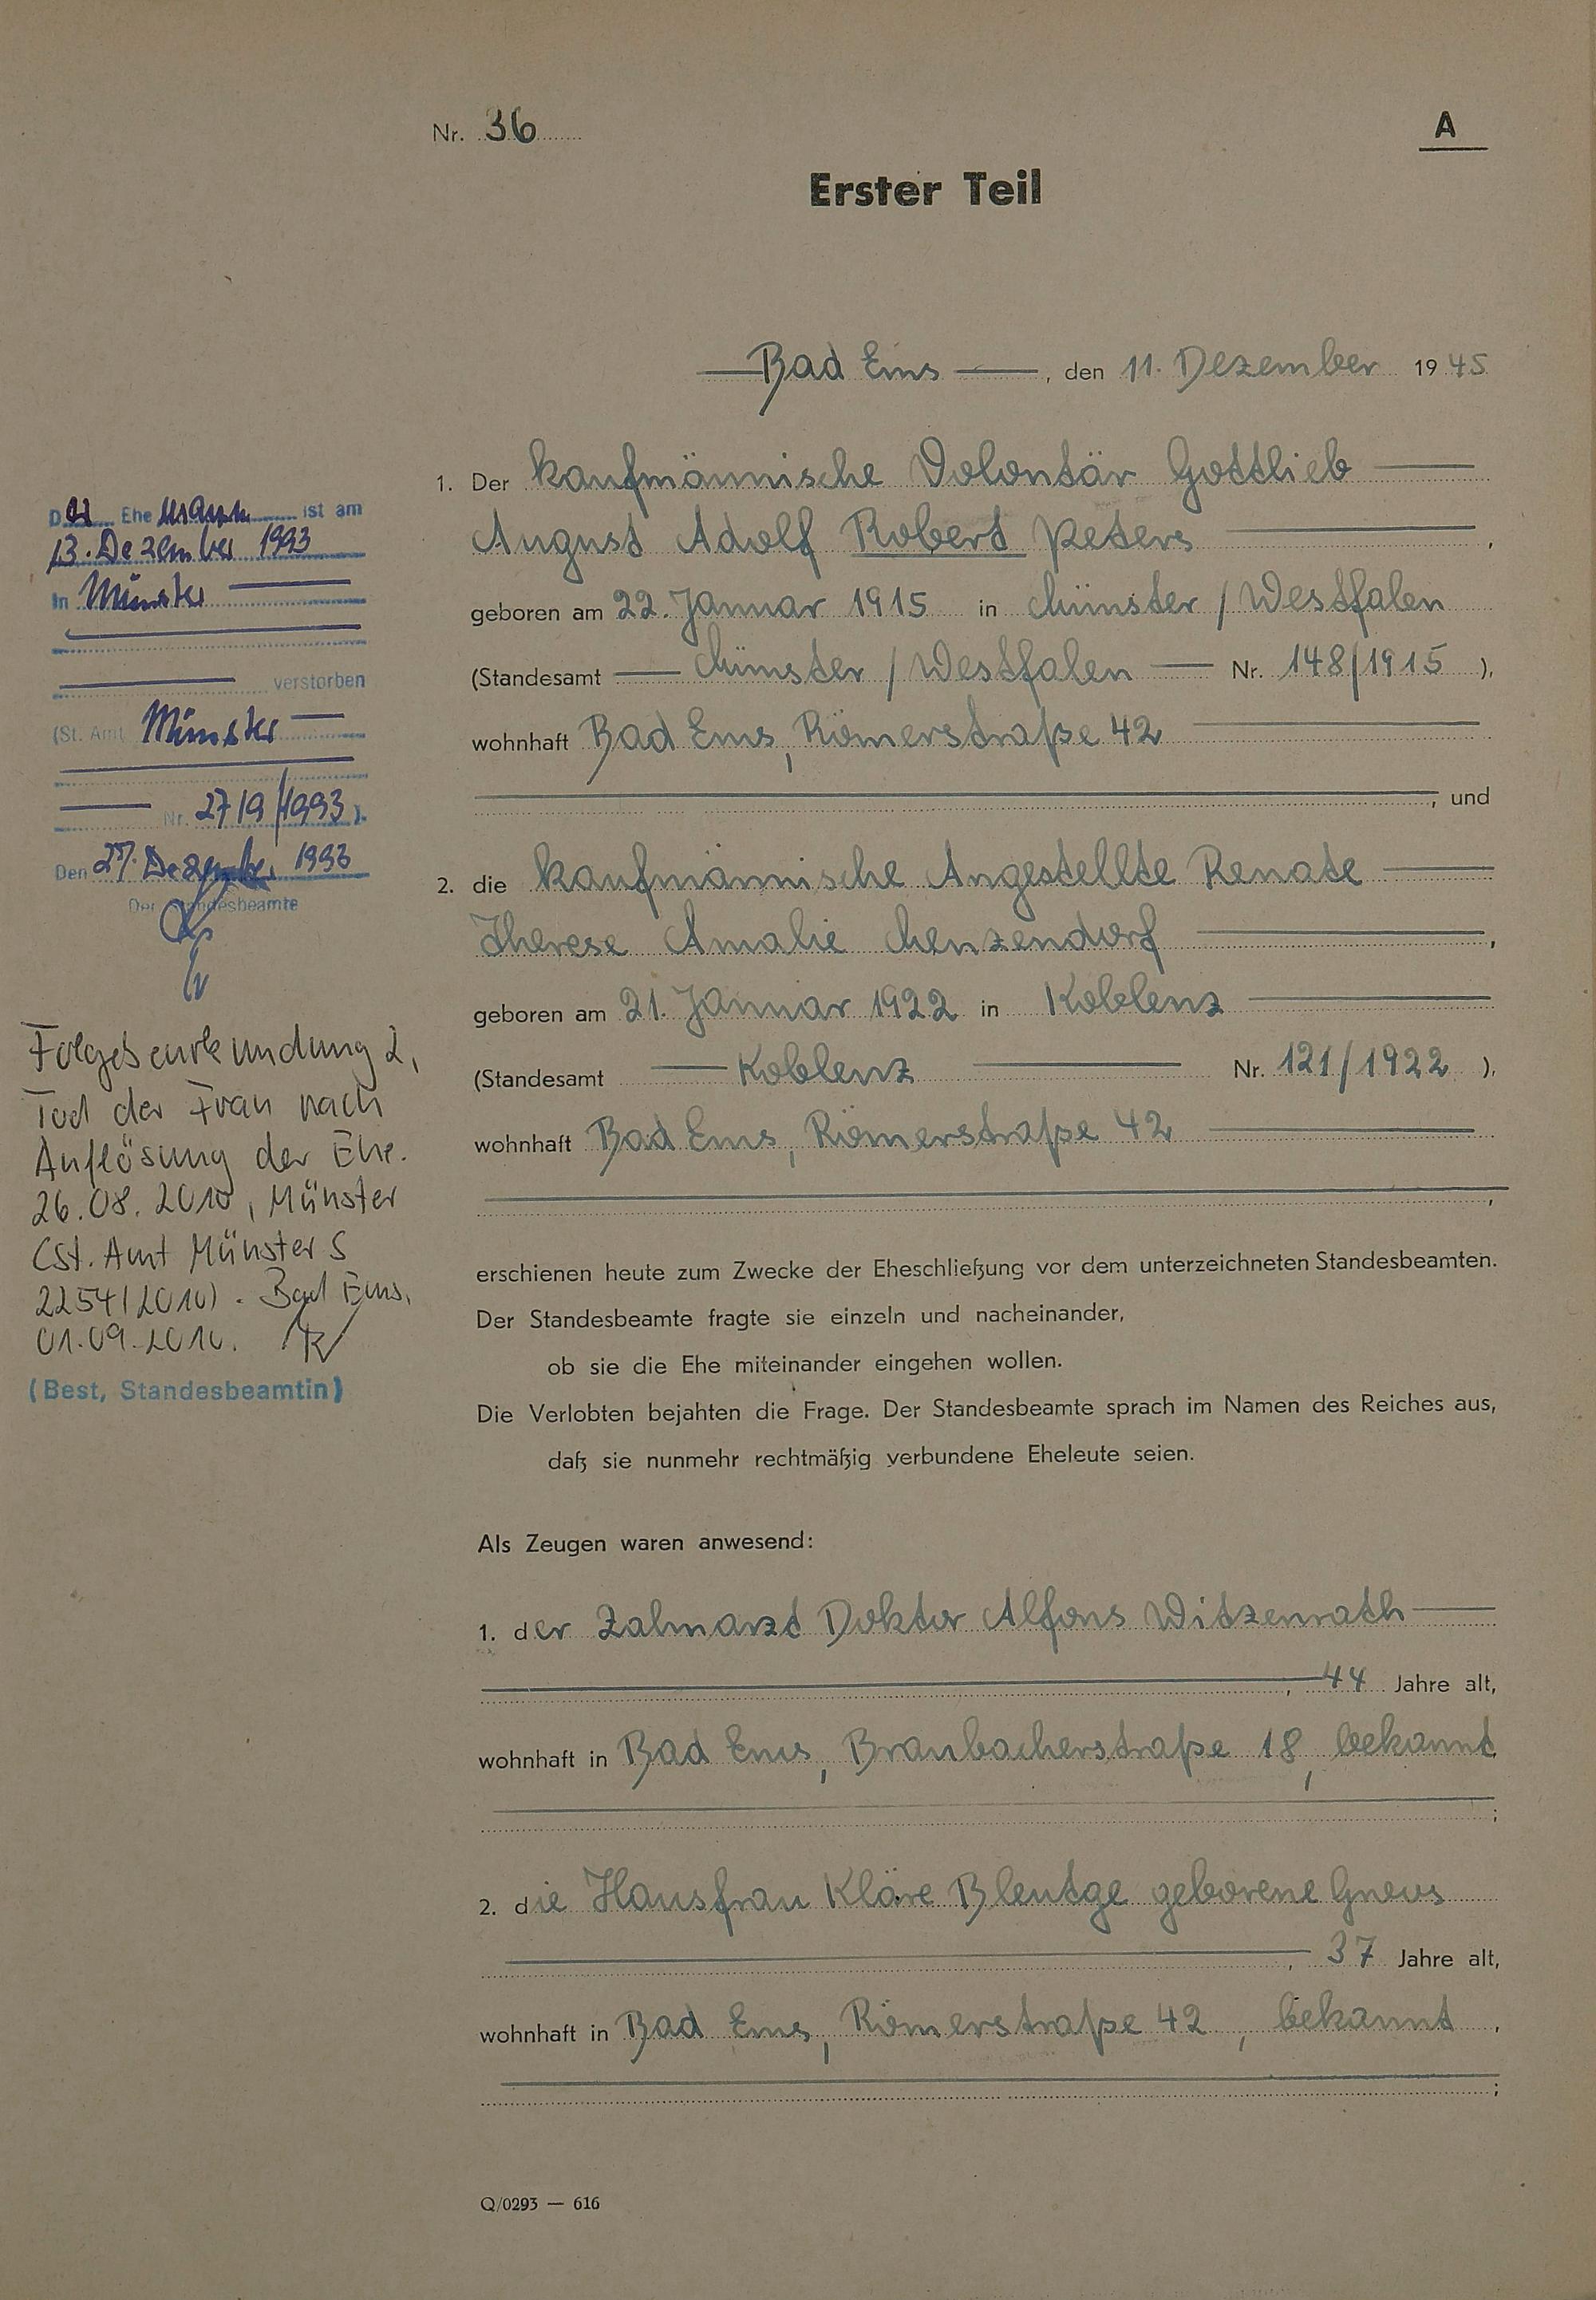 Nr. 36
A
Erster Teil
Bad Ems, den 11. Dezember 1945
1. Der kaufmännische Volontär Gottlieb
August Adolf Robert Peters,
geboren am 22. Januar 1915 in Münster / Westfalen
(Standesamt Münster / Westfalen Nr. 148/1915),
wohnhaft Bad Ems, Römerstraße 42
, und
2. die kaufmännische Angestellte Renate
Therese Amalie Menzendorf,
geboren am 21. Januar 1922 in Koblenz
(Standesamt Koblenz Nr. 121/1922),
wohnhaft Bad Ems, Römerstraße 42
,
erschienen heute zum Zwecke der Eheschließung vor dem unterzeichneten Standesbeamten.
Der Standesbeamte fragte sie einzeln und nacheinander,
ob sie die Ehe miteinander eingehen wollen.
Die Verlobten bejahten die Frage. Der Standesbeamte sprach im Namen des Reiches aus,
daß sie nunmehr rechtmäßig verbundene Eheleute seien.
Als Zeugen waren anwesend:
1. der Zahnarzt Doktor Alfons Witzenrath
, 44 Jahre alt,
wohnhaft in Bad Ems, Braubacherstraße 18, bekannt
;
2. die Hausfrau Kläre Blentge geborene Gneus
, 37 Jahre alt,
wohnhaft in Bad Ems, Römerstraße 42, bekannt.
;
Q/0293 — 616
Der Ehemann ist am
13. Dezember 1993
in Münster
verstorben
(St. Amt Münster
Nr. 2719/1993).
Den 27. Dezember 1993
Der Standesbeamte
Folgebeurkundung 2,
Tod der Frau nach
Auflösung der Ehe.
26.08.2010, Münster
(St. Amt Münster S
2254/2010). Bad Ems,
01.09.2010.
(Best, Standesbeamtin)